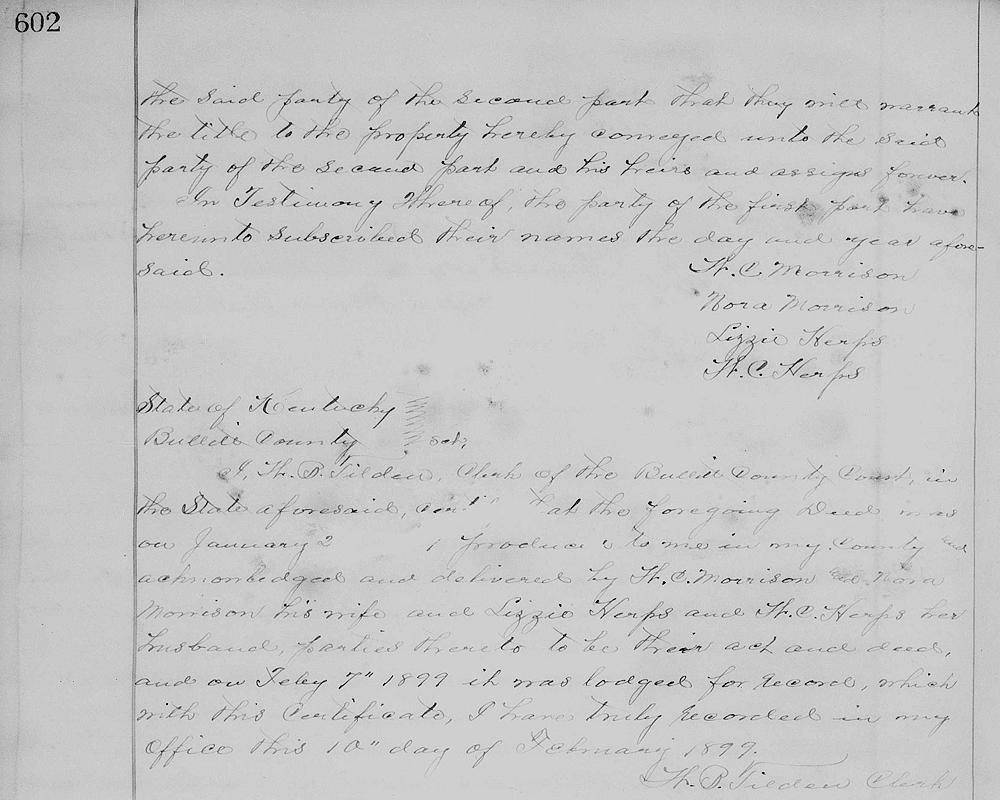 602
the said party of the second part that they will warrant
the title to the property hereby conveyed unto the said
party of the second part and his heirs and assigns forever.
In Testimony Whereof, the party of the first part have
hereunto subscribed their names the day and year afore-
said.
W. C. Morrison
Nora Morrison
Lizzie Herps
W. C. Herps
State of Kentucky
Bullitt County sct,
I, W. B. Tilden, Clerk of the Bullitt County Court, in
the State aforesaid, the foregoing Deed was
on January 2 to me in my County and
acknowledged and delivered by W. C. Morrison and Nora
Morrison his wife and Lizzie Herps and W. C. Herps her
husband, parties thereto to be their act and deed,
and on Feby 7" 1899 it was lodged for record, which
with this Certificate, I have truly recorded in my
Office this 10" day of February 1899.
W. B. Tilden Clerk